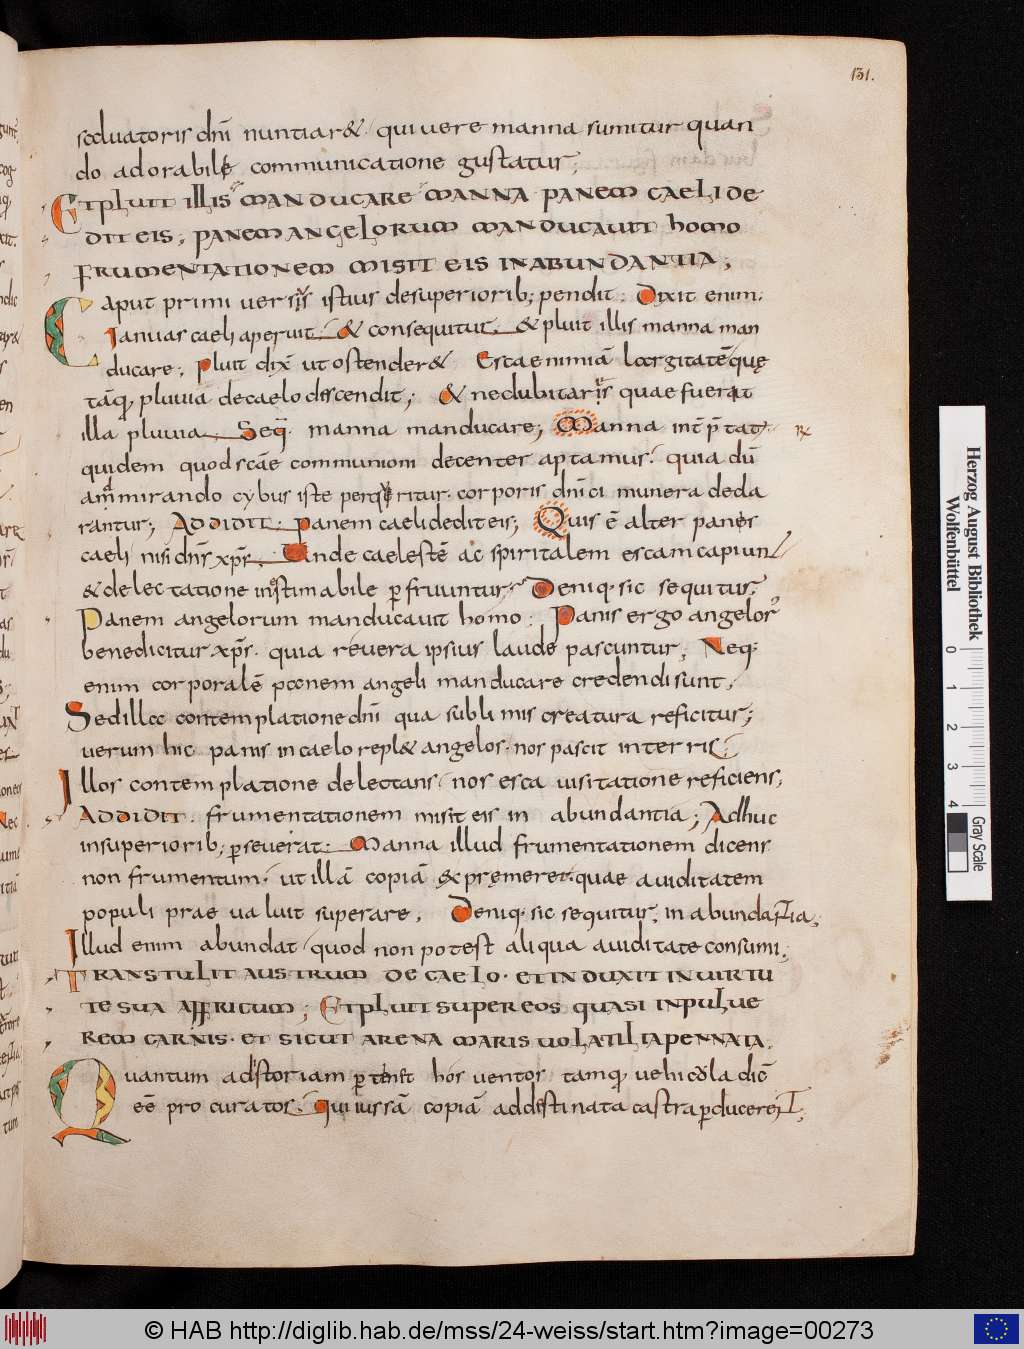 131.
seduatoris dnī nuntiar&. qui uere manna sumitur quan
do adorabile communicatione gustatur;
Et pluit illis manducare manna panem caeli de
dit eis; panem angelorum manducauit homo
frumentationem misit eis in abundantia;
Caput primi uersus istius desuperiorib; pendit. Dixit enim.
Ianuas caeli aperuit. & consequitur. & pluit illis manna man
ducare; Pluit dix̄ ut ostender& Escae nimiā largitatē quę
tāq pluuia de caelo discendit; & ne dubitaris quae fuerat
illa pluuia. Seq̄. manna manducare; Manna int̄p̄tat.
quidem quod scāe communioni decenter aptamus. quia dū
ammirando cybus iste perquiritur. corporis dnīci munera deda
rantur; Addidit. panem caeli dedit eis; Quis ē alter panis
caeli nisi dn̄s xp̄s. Unde caelestē ac spiritalem escam capiunt
& delectatione inestimabile pfruuntur. Deniq. sic sequitur.
Panem angelorum manducauit homo. Panis ergo angelor
benedicitur xp̄s. quia reuera ipsius laude pascuntur; Neq.
enim corporalē panem angeli manducare credendi sunt;
Sed illa contemplatione dnī qua sublimis creatura reficitur;
uerum hic panis in caelo repl& angelos. nos pascit in terris;
Illos contemplatione delectans. nos esca uisitatione reficiens;
Addidit. frumentationem misit eis in abundantia; Adhuc
in superiorib; pseuerat. Manna illud frumentationem dicens
non frumentum. ut illā copiā exprĕmeret. quae auiditatem
populi praeualuit superare. Deniq. sic sequitur. in abundantia;
Illud enim abundat quod non potest aliqua auiditate consumi;
Transtulit austrum de caelo. et induxit in uirtu
te sua affricum; Et pluit super eos quasi in puluue
rem carnis. et sicut arena maris uolatilia pennata.
Quantum ad istoriam ptenet hos uentos tamq uehicola dic̄
eē procuratos. Qui iussā copiā ad destinata castra pducerent;
Herzog August Bibliothek
Wolfenbüttel
0 1 2 3 4
Gray Scale
© HAB http://diglib.hab.de/mss/24-weiss/start.htm?image=00273